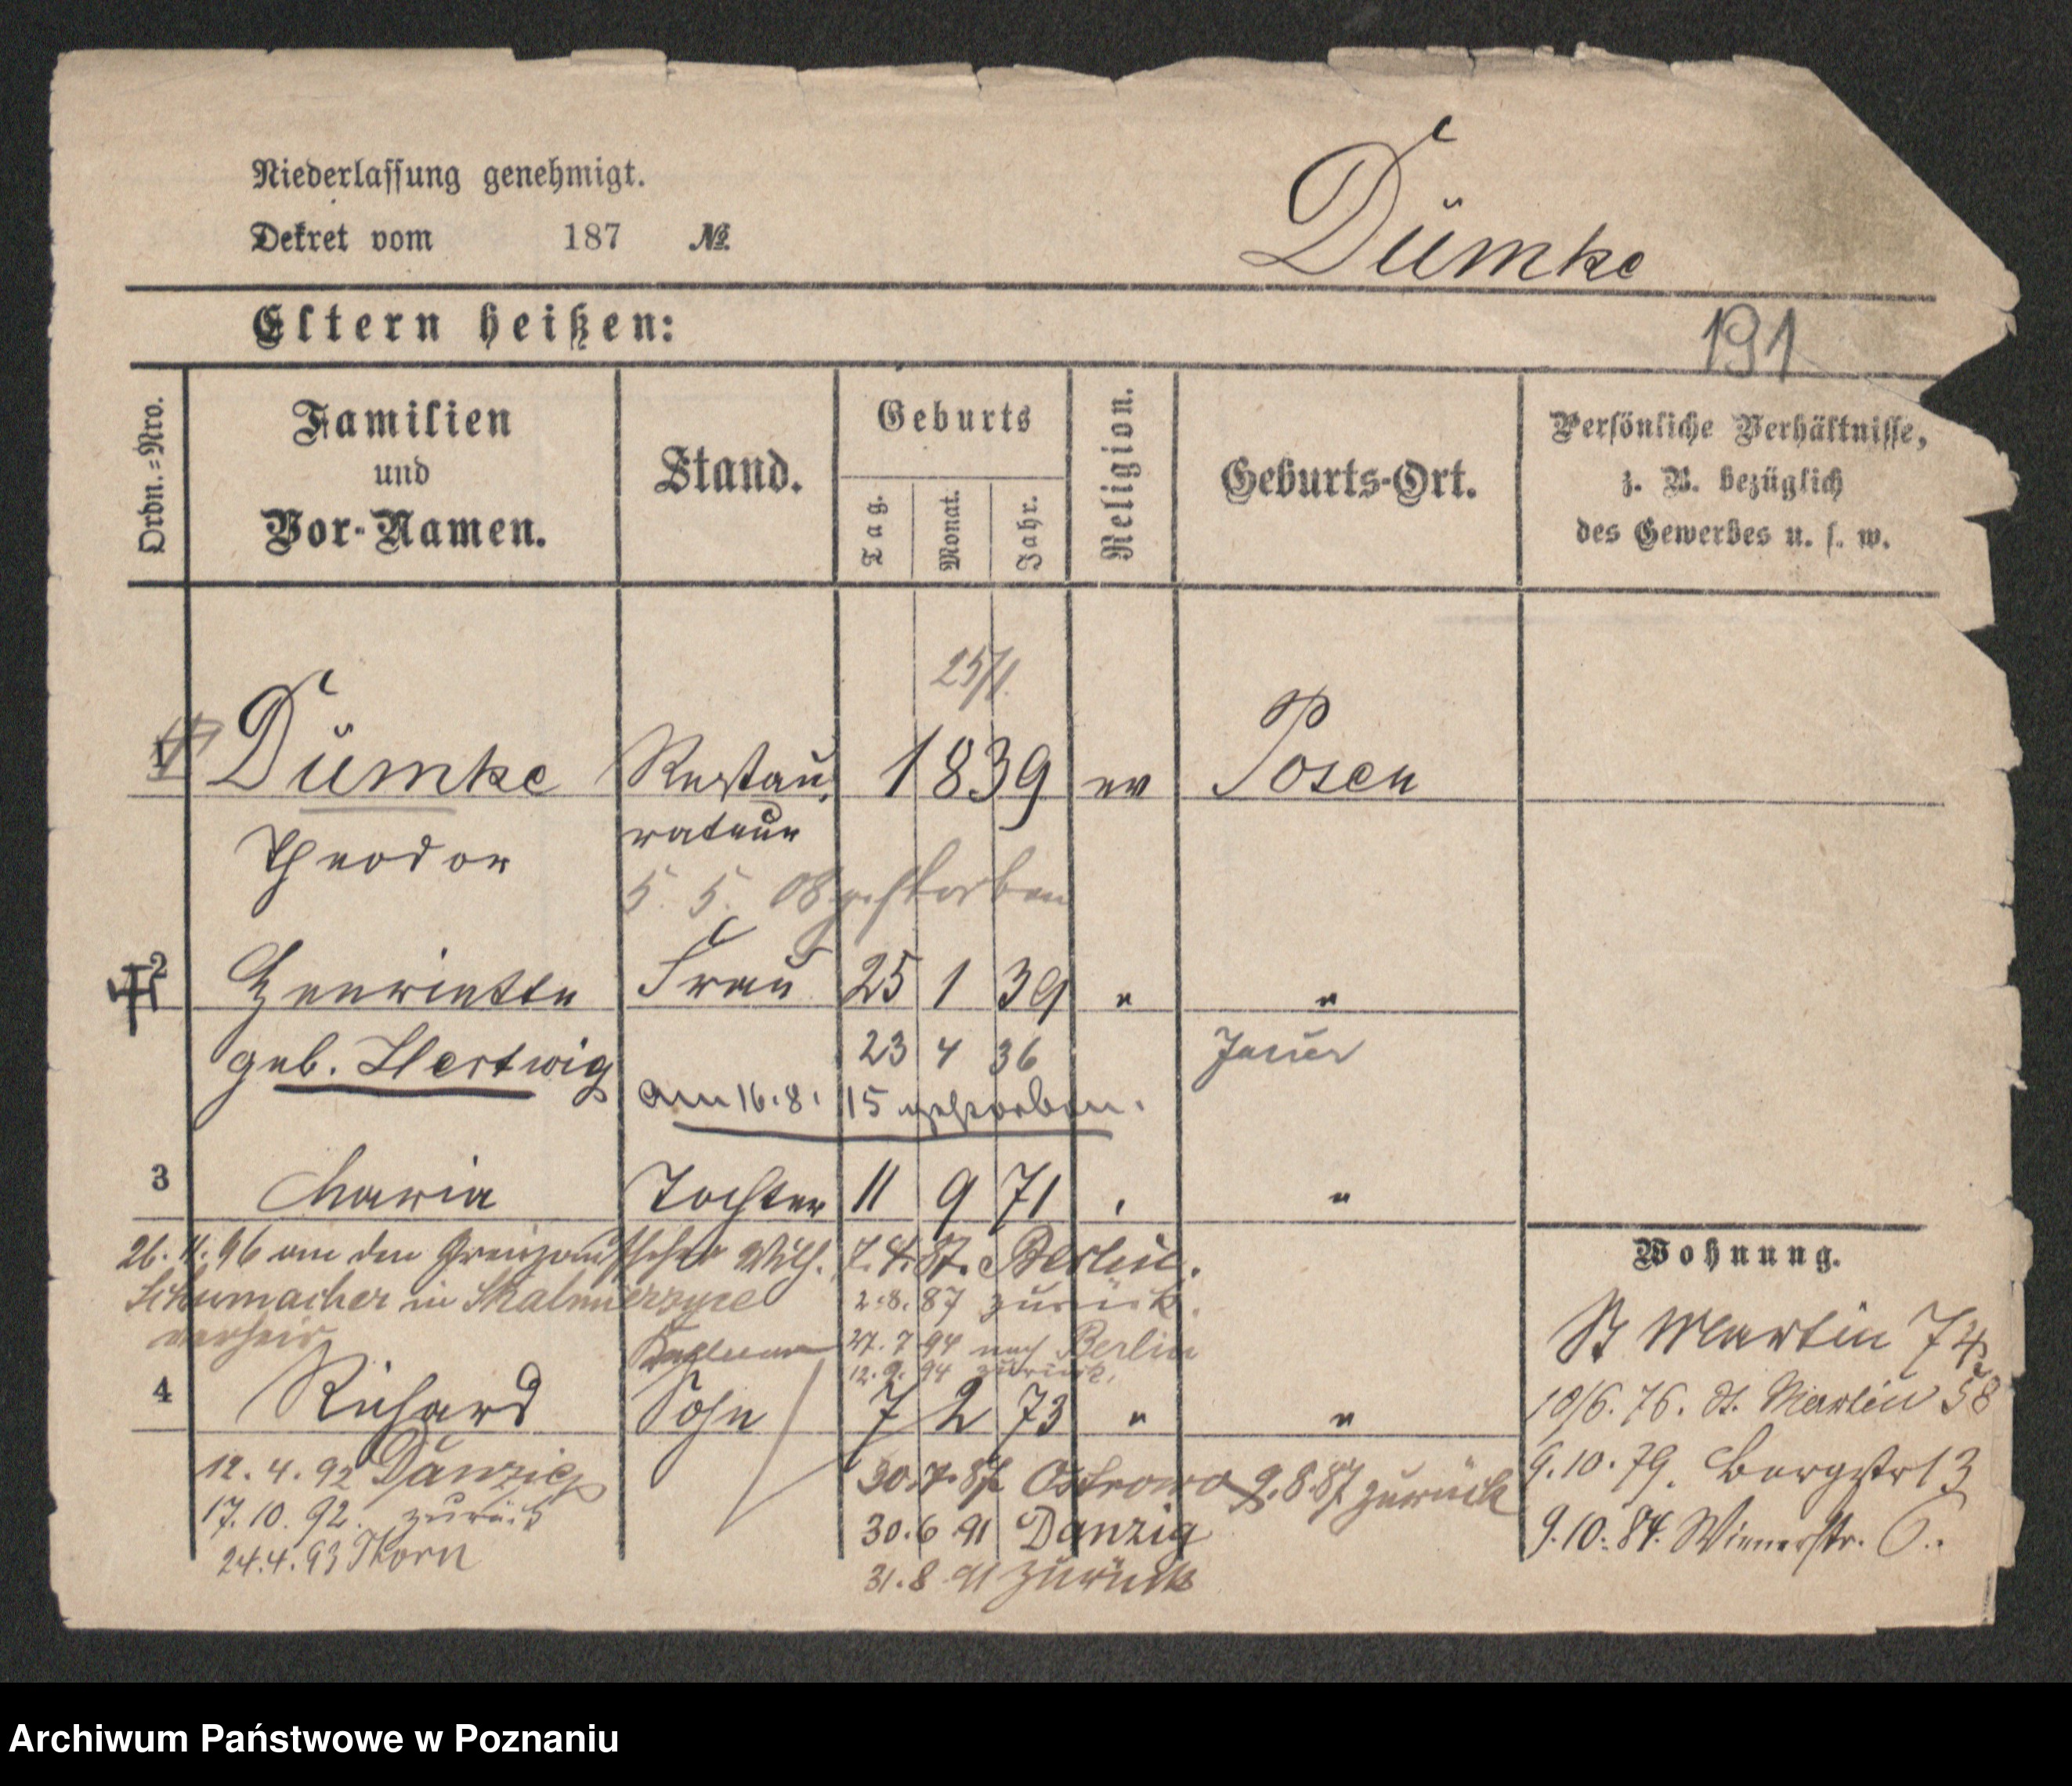 Niederlassung genehmigt.
Dekret vom 187 No.
Dümke
Eltern heißen:
191
Ordn.=Nro.
Familien
und
Vor-Namen.
Stand.
Geburts
Tag.
Monat.
Jahr.
Religion.
Geburts-Ort.
Persönliche Verhältnisse,
z. B. bezüglich
des Gewerbes u. s. w.
25/1.
1 Dümke Restau- 1839 ev Posen
Theodor rateur
5. 5. 08 gestorben
2 Henriette Frau 25 1 39 " "
geb. Hertwig 23 4 36 Jauer
am 16.8. 15 gestorben.
3 Maria Tochter 11 9 71 " "
26. 11. 96 an den Grenzaufseher Wilh. 7.4.87. Berlin.
Schumacher in Skalmierzyce 2.8.87 zurück.
verheir 27.7 94 nach Berlin
12.9.94 zurück.
4 Richard Sohn 7 2 73 " "
12.4.92 Danzig 30.7.87 Ostrowo 9.8.87 zurück
17.10.92. zurück 30.6 91 Danzig
24.4.93 Thorn 31.8 91 zurück
Wohnung.
St Martin 74
10/6.76. St. Martin 58
9.10.79. Bergstr 13
9.10.84. Wienerstr. 6.
Archiwum Państwowe w Poznaniu